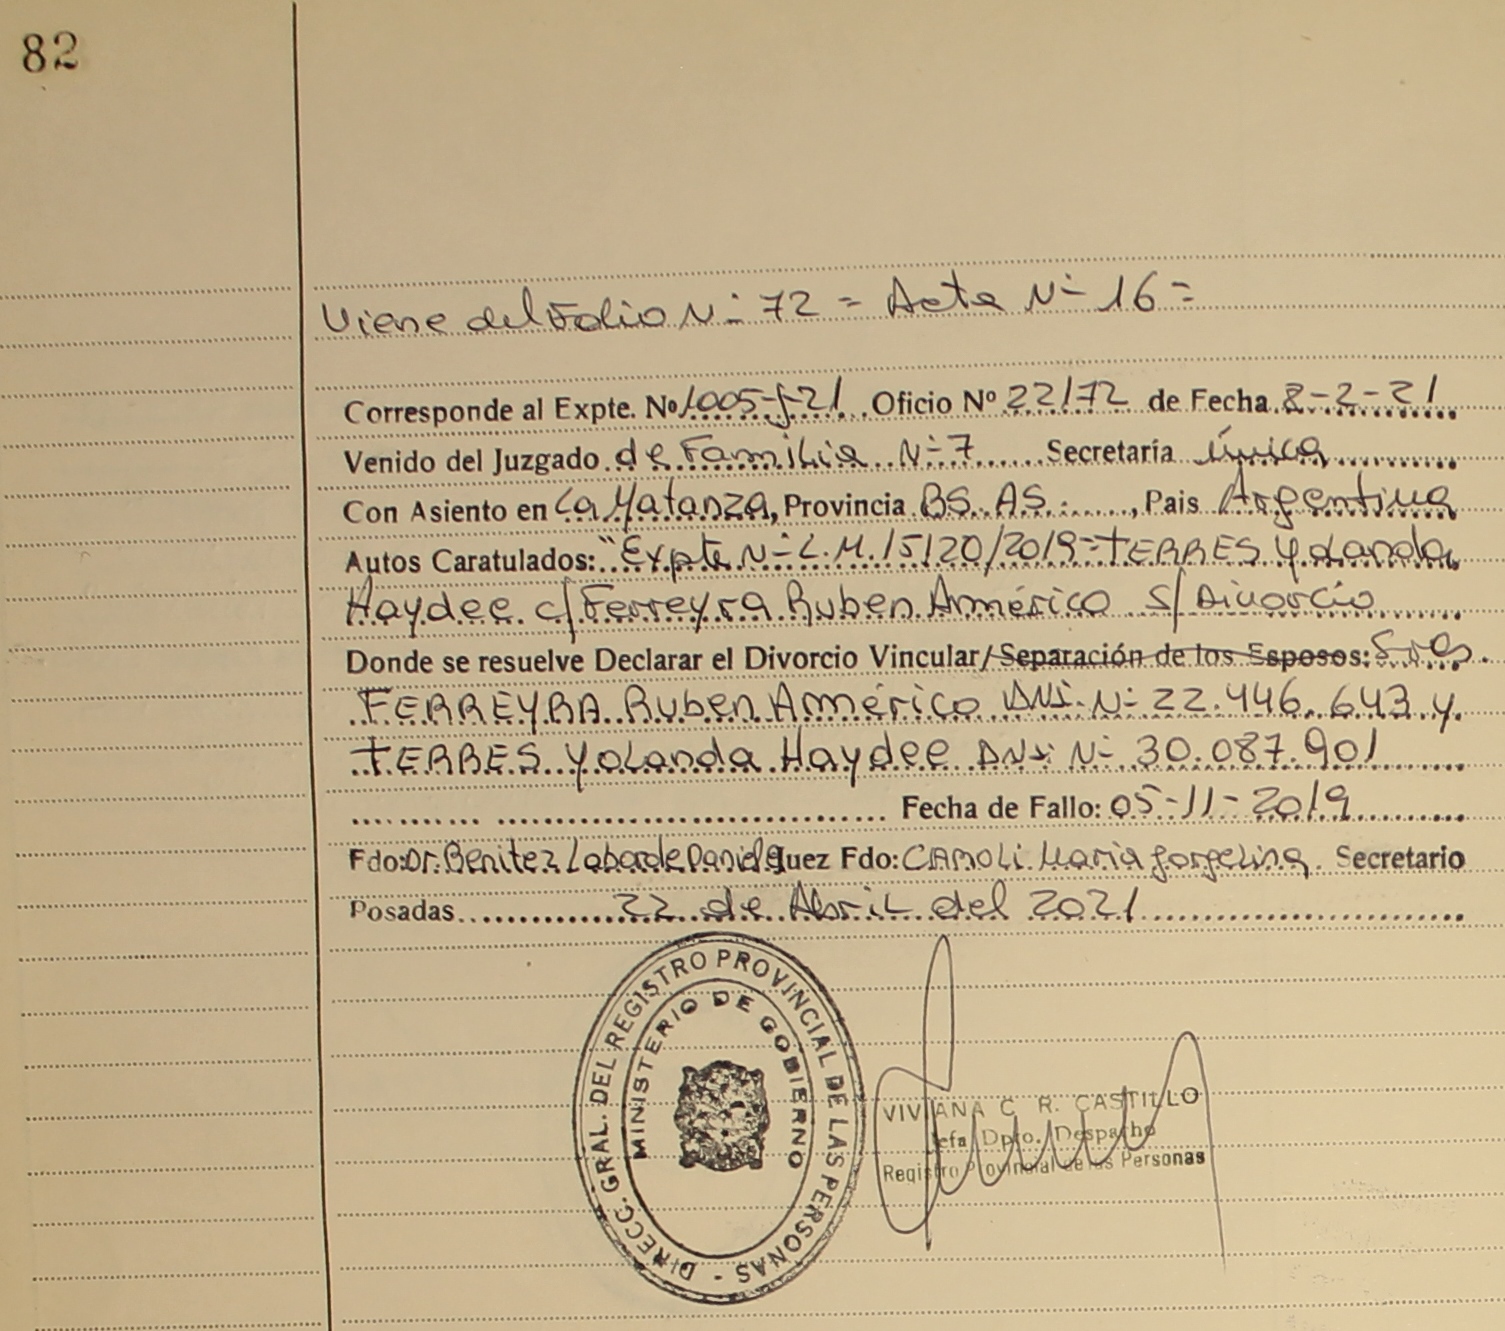 82
Viene del Folio Nº 72 = Acta Nº 16 =
Corresponde al Expte. Nº 1005-J-21 Oficio Nº 22172 de Fecha 8-2-21
Venido del Juzgado de Familia Nº 7 Secretaría Única
Con Asiento en La Matanza, Provincia BS. AS. , Pais Argentina
Autos Caratulados: "Expte Nº L.M. 15120/2019 = TERRES Yolanda
Haydee c/ Ferreyra Ruben Américo s/ Divorcio
Donde se resuelve Declarar el Divorcio Vincular/Separación de los Esposos: Sres.
FERREYRA Ruben Américo DNI. Nº 22.446.643 y
TERRES Yolanda Haydee DNI Nº 30.087.901
Fecha de Fallo: 05-11-2019
Fdo: Dr. Benitez Laborde Daniel Juez Fdo: CAROLI Maria Jorgelina Secretario
Posadas 22 de Abril del 2021
DIRECC. GRAL. DEL REGISTRO PROVINCIAL DE LAS PERSONAS -
MINISTERIO DE GOBIERNO
VIVIANA C. R. CASTILLO
Jefa Dpto. Despacho
Registro Provincial de las Personas